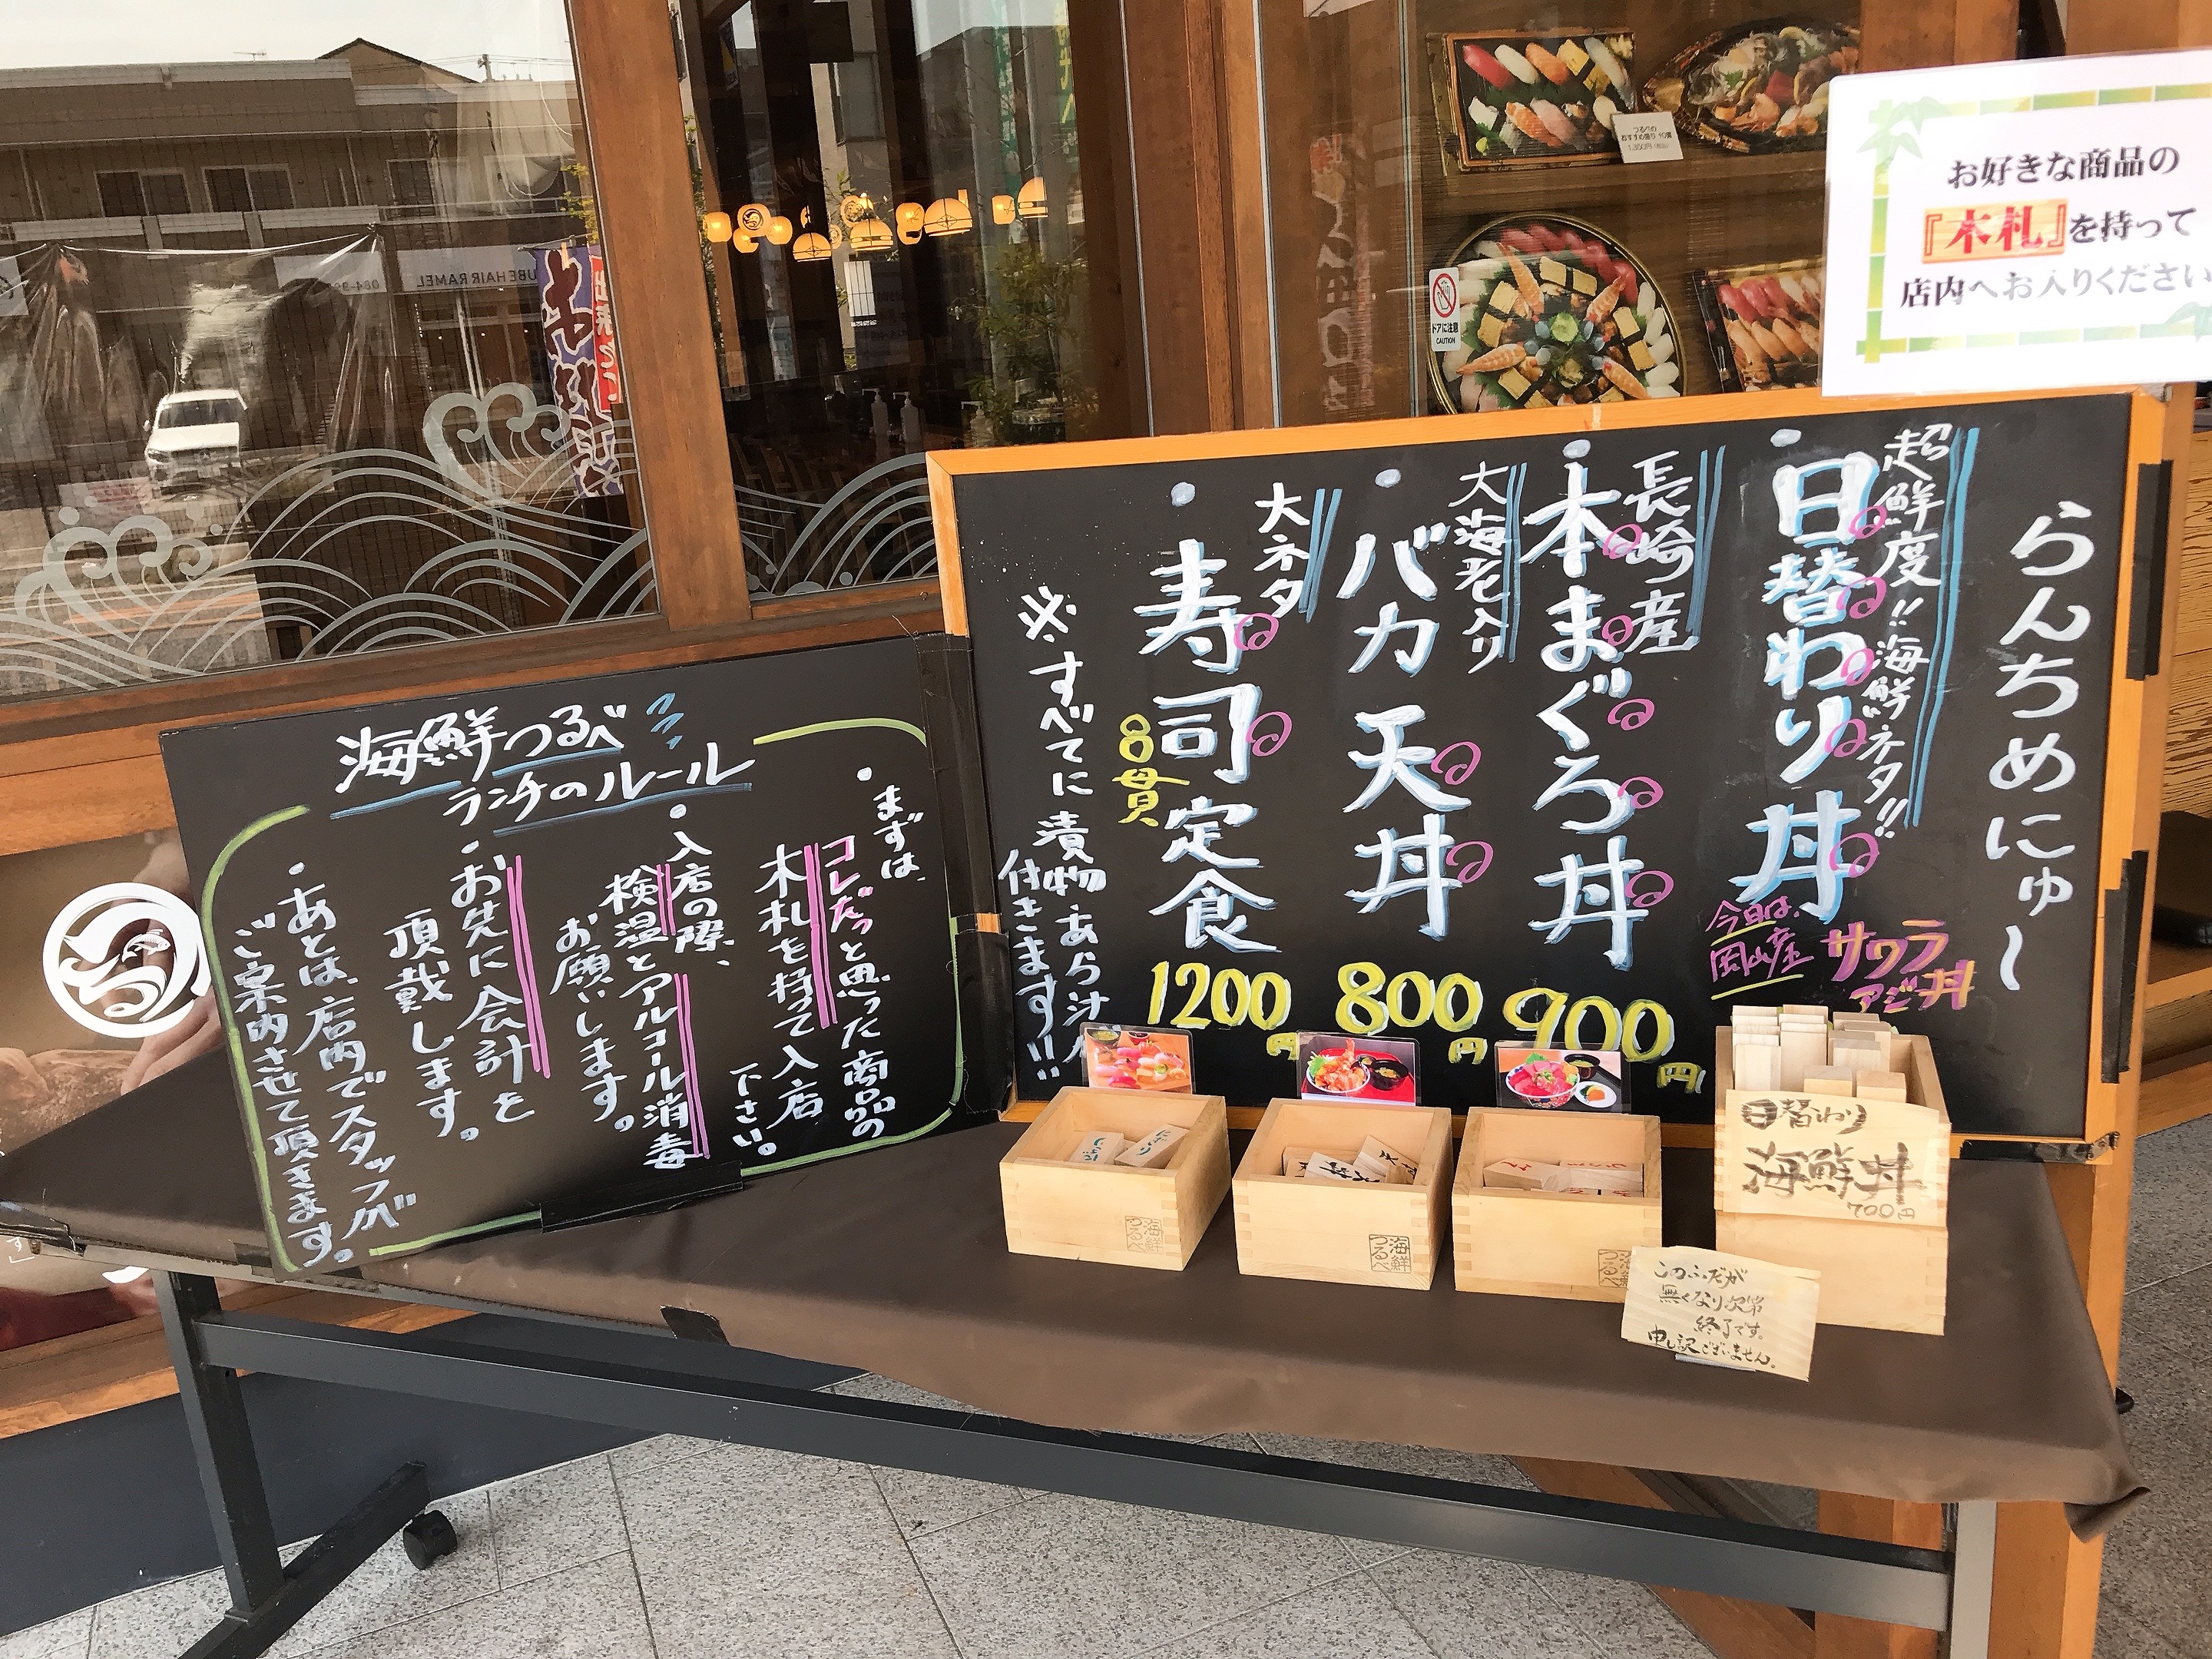 お好きな商品の
『木札』を持って
店内へお入りください
らんちめにゅー
超鮮度!!海鮮ネタ!!
日替わり丼
今日は、
岡山産
サワラ
アジ丼
長崎産
本まぐろ丼
900円
大海老入り
バカ天丼
800円
大ネタ
寿司定食
8貫
1200円
※すべてに漬物・あら汁が
付きます!!
海鮮つるべ
ランチのルール
・まずは、
コレだっと思った商品の
木札を持って入店
下さい。
・入店の際、
検温とアルコール消毒
お願いします。
・お先に会計を
頂戴します。
・あとは、店内でスタッフが
ご案内させて頂きます。
日替わり
海鮮丼
700円
このふだが
無くなり次第
終了です。
申し訳ございません。
海鮮
つるべ
海鮮
つるべ
海鮮
つるべ
つるべの
おすすめ盛り 10貫
1,350円(税込)
ドアに注意
CAUTION
UBE HAIR RAMEL